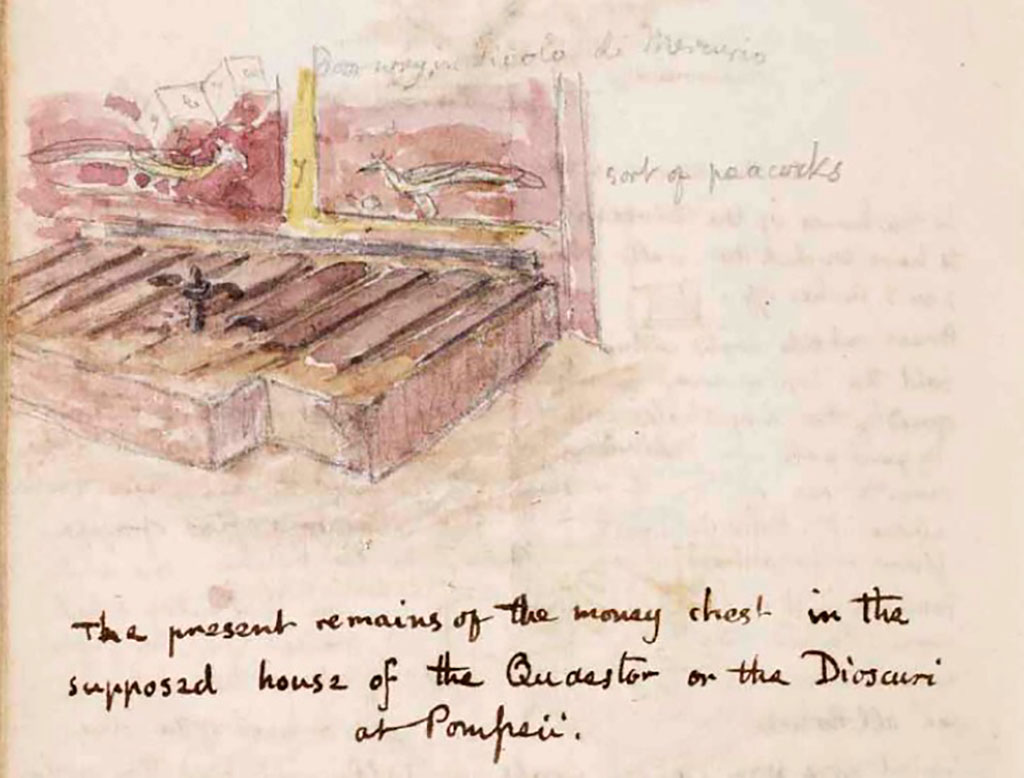 in Vicolo di Mercurio
y
sort of peacocks
The present remains of the money chest in the
supposed house of the Quaestor or the Dioscuri
at Pompeii.